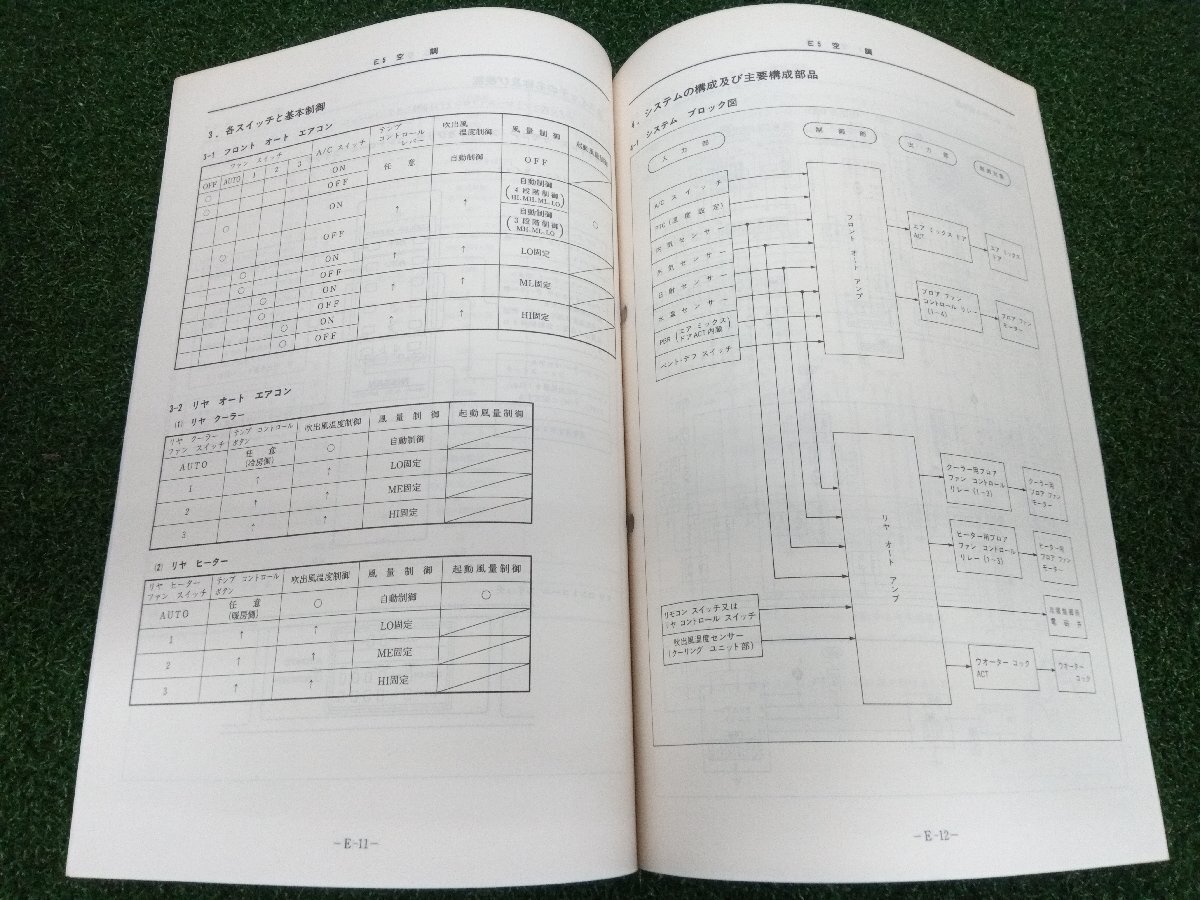 E5 空 調
3. 各スイッチと基本制御
3-1 フロント オート エアコン
ファン スイッチ
OFF AUTO 1 2 3
A/C スイッチ
テンプ
コントロール
レバー
吹出風
温度制御
風 量 制 御
起動風量制御
○ ON 任 意 自動制御 OFF
OFF
○ ON ↑ ↑ 自動制御
(4段階制御)
HI. MH. ML. LO
○
○ OFF 自動制御
(3段階制御)
MH. ML. LO
○ ON ↑ ↑ LO固定
○ OFF
○ ON ↑ ↑ ML固定
○ OFF
○ ON ↑ ↑ HI固定
○ OFF
3-2 リヤ オート エアコン
(1) リヤ クーラー
リヤ クーラー
ファン スイッチ
テンプ コントロール
ボタン
吹出風温度制御 風 量 制 御 起動風量制御
AUTO 任 意
(冷房側)
○ 自動制御
1 ↑ ↑ LO固定
2 ↑ ↑ ME固定
3 ↑ ↑ HI固定
(2) リヤ ヒーター
リヤ ヒーター
ファン スイッチ
テンプ コントロール
ボタン
吹出風温度制御 風 量 制 御 起動風量制御
AUTO 任 意
(暖房側)
○ 自動制御 ○
1 ↑ ↑ LO固定
2 ↑ ↑ ME固定
3 ↑ ↑ HI固定
－E-11－
E5 空 調
4. システムの構成及び主要構成部品
4-1 システム ブロック図
入 力 部
制 御 部
出 力 部
A/C スイッチ
PTC (温度設定)
内気センサー
外気センサー
日射センサー
水温センサー
PBR (エア ミックス
ドアACT内蔵)
ベント・デフ スイッチ
フロント オート アンプ
エア ミックス ドア
ACT
エア ミックス
ドア
ブロア ファン
コントロール リレー
(1～4)
ブロア ファン
モーター
リモコン スイッチ又は
リヤ コントロール スイッチ
吹出風温度センサー
(クーリング ユニット部)
リヤ オート アンプ
クーラー用ブロア
ファン コントロール
リレー (1～3)
クーラー用
ブロア ファン
モーター
ヒーター用ブロア
ファン コントロール
リレー (1～3)
ヒーター用
ブロア ファン
モーター
電 磁 弁
ウオーター コック
ACT
ウオーター
コック
－E-12－